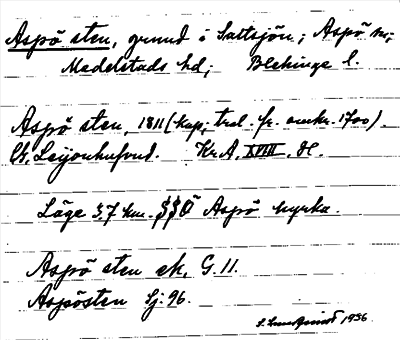 Aspö sten, grund i Saltsjön; Aspö sn;
Medelstads hd; Blekinge l.
Aspö sten, 1811 (kop. trol. fr. omkr. 1700).
G. Leijonhufvud. Kr.A. XVIII. H.
Läge 3,7 km. SSO Aspö kyrka.
Aspö sten ek. G. 11.
Aspösten Sj. 96.
1956